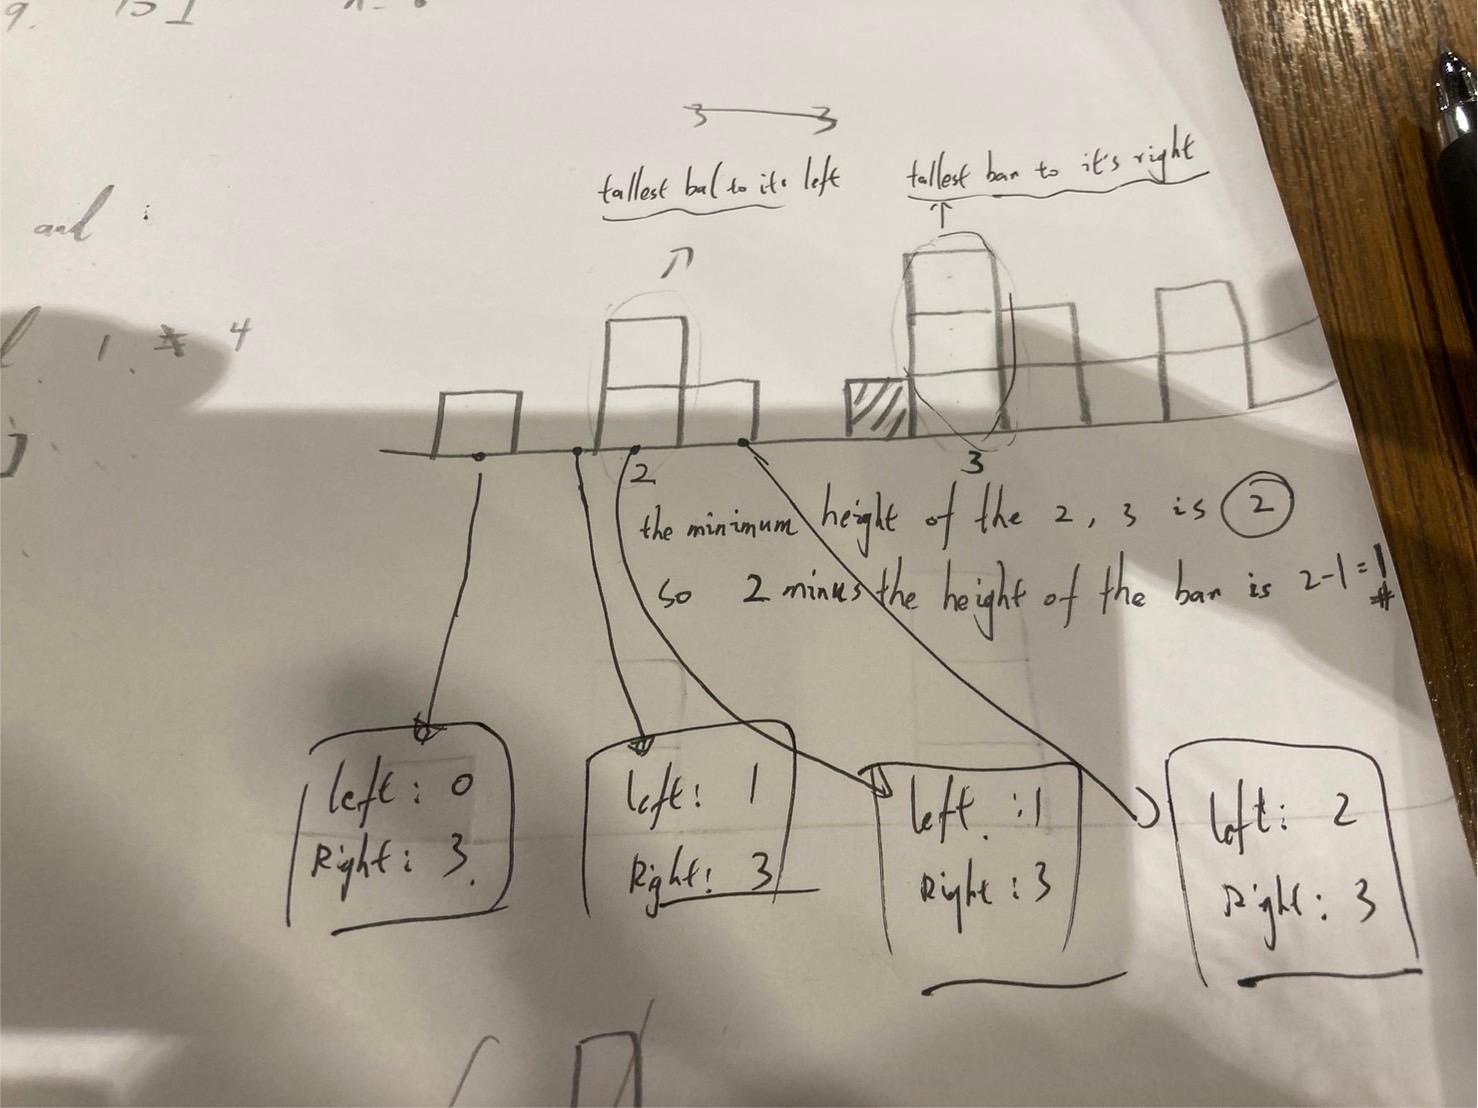 9.
and :
1 * 4
3 3
tallest bal to it's left
tallest bar to it's right
2
3
the minimum height of the 2, 3 is 2
so 2 minus the height of the bar is 2-1=1
#
left: 0
Right: 3.
left: 1
Right: 3
left: 1
Right: 3
left: 2
Right: 3